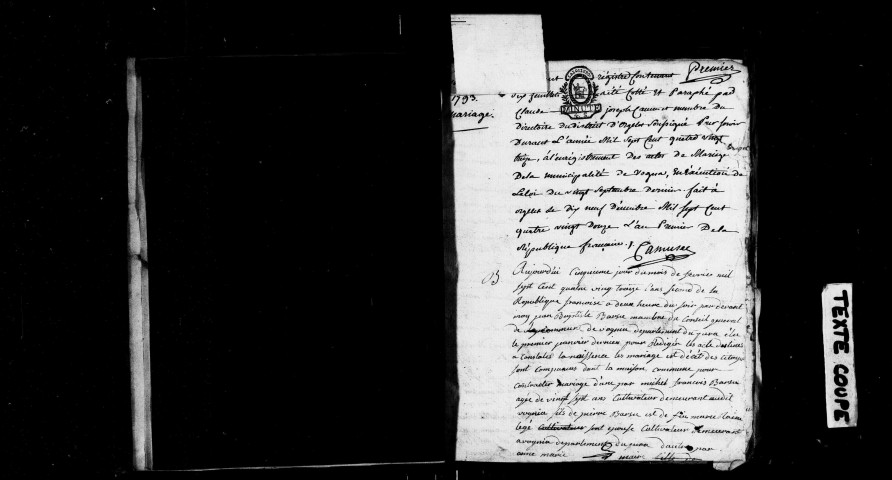 Premier
registre Contenant
dix feuillets Cotté et Paraphé par
1793.
mariage.
Claude joseph Camuset membre du
MINUTE
Directoire du district d'Orgelet Servir
Durant L'année Mil Sept Cent quatre vingt
treize, à l'enrégistrement des actes de Mariage
De la municipalité de vogna, En Exécution de
La Loi du vingt Septembre dernier. fait à
orgelet le Dix neuf Décembre Mil Sept Cent
quatre vingt Douze L'an Premier De la
République française.
Camuset
Aujourdui Cinquieme jour du mois de fevrier mil
sept Cent quatre vingt treize l'ans second de la
Republique francoise a deux heure du soir par devant
moy jean Baptiste Barsu mambre du Conseil general
de la commune de vognia departement du jura élu
le premier janvier dernier pour Rediger les acte destinés
a Constater la naissence les mariage est décéts des citoyens
sont comparus dant la maison commune pour
contracter mariage d'une par michel francois Barsu
agée de vingt sept ans Cultivateur demeurant audit
vognia fils de pierre Barsu est de feu marie
sont epouse Cultivateur demeurant
a vognia departement du jura d'autre par
anne marie fille de
TEXTE COUPE